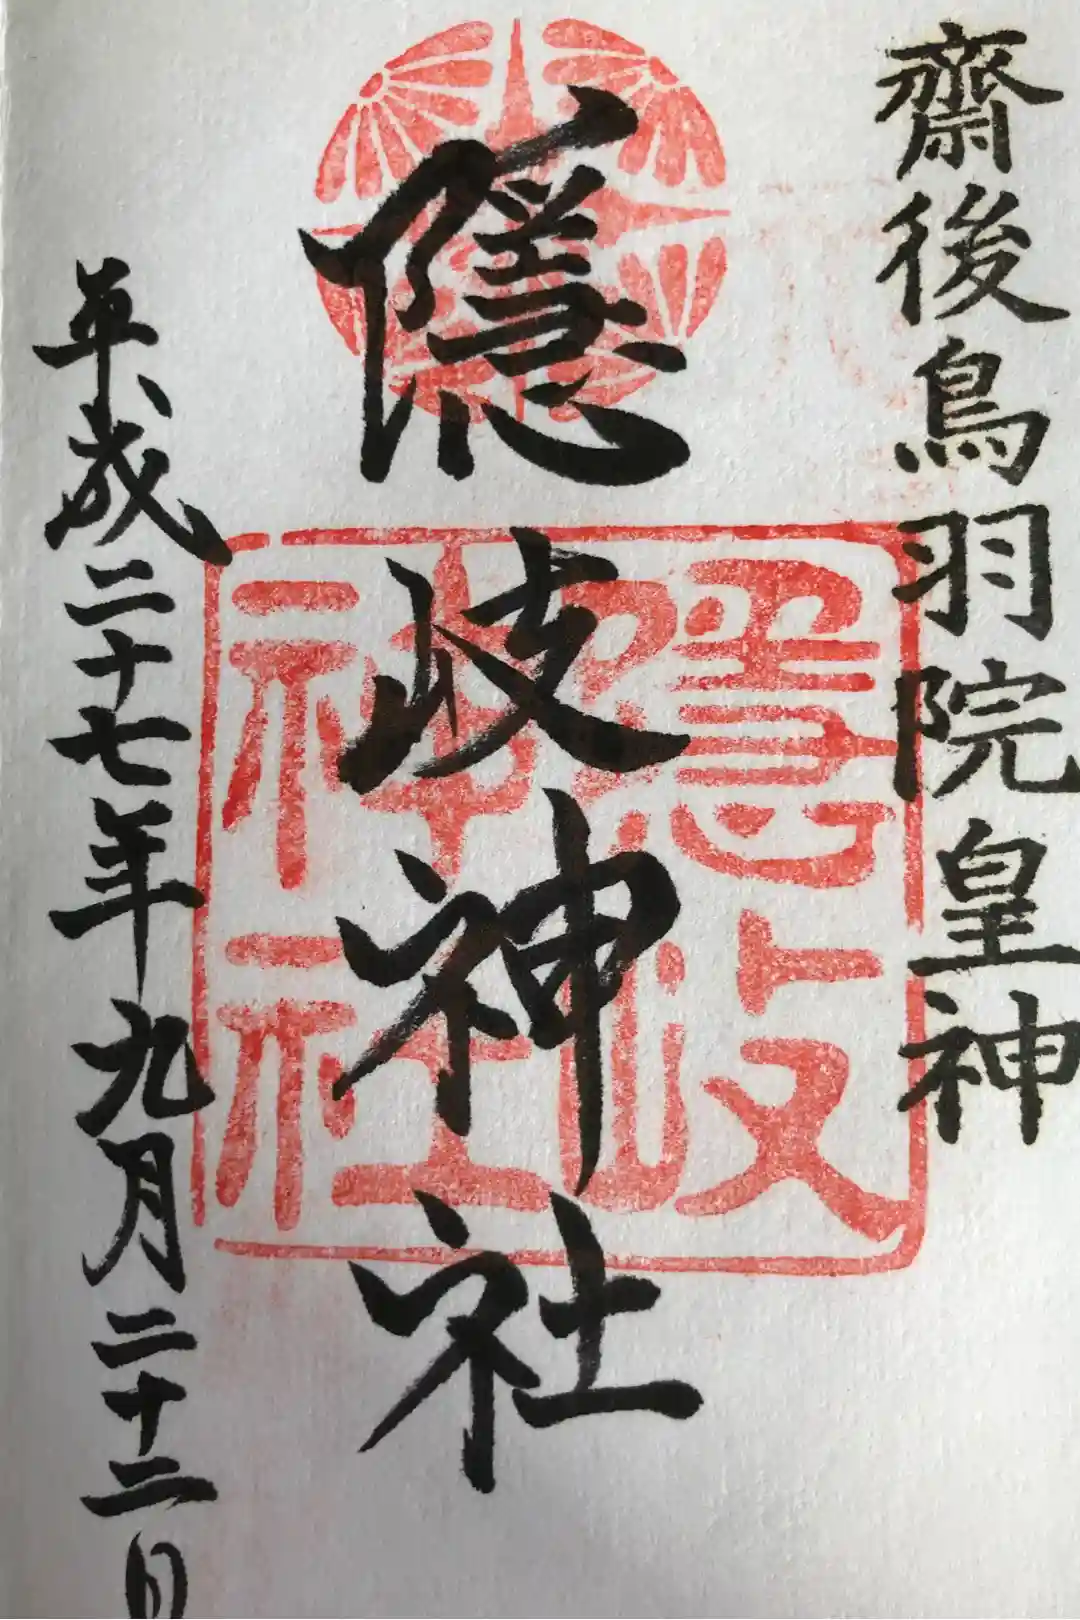 齋後鳥羽院皇神
隠岐神社
隠岐神社
平成二十七年九月二十二日